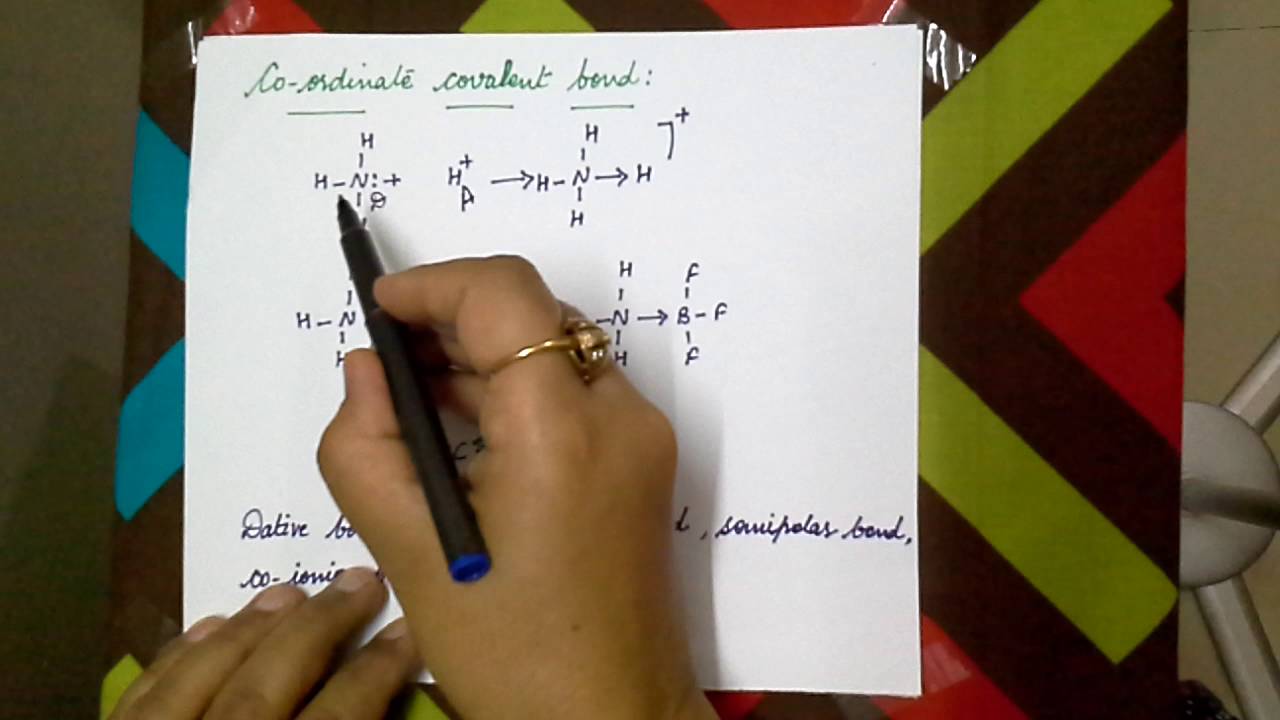 Co-ordinate covalent bond:
H H ]+
H – N: + H+ ⟶ H – N → H
D A
H
H F
H – N – N → B – F
H H F
C≡
Dative , semipolar bond,
co-ionic